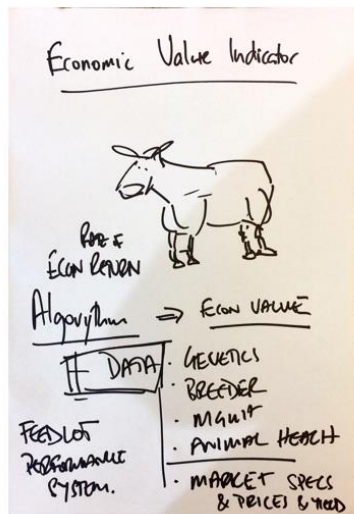 Economic Value Indicator
RATE OF
ECON RETURN
Algorythm ⇒ ECON VALUE
DATA
· GENETICS
· BREEDER
· MGMT
· ANIMAL HEALTH
FEEDLOT
PERFORMANCE
SYSTEM.
· MARKET SPECS
& PRICES & YIELD